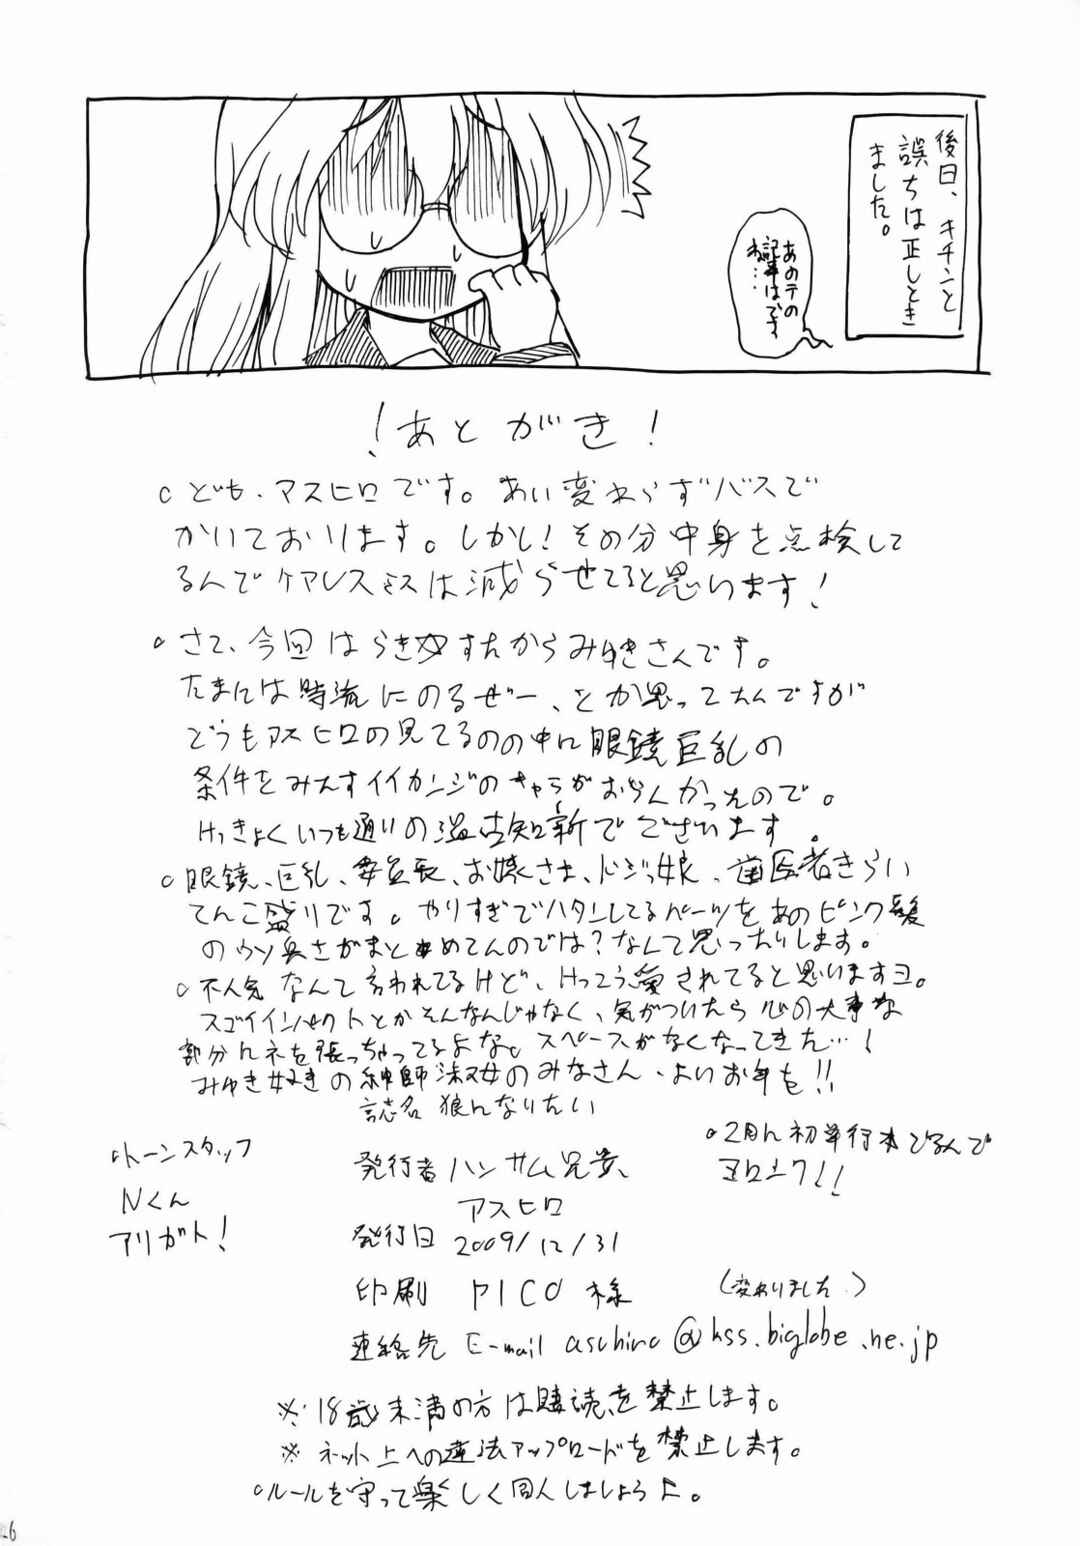 後日、キチンと
誤ちは正しとき
ました。
あのテの
記事はですね…
！あとがき！
○ども、アスヒロです。あい変わらずバスで
かいております。しかし！その分中身を点検して
るんでケアレスミスは減らせてると思います！
○さて、今回はらき☆すたからみゆきさんです。
たまには時流にのるぜー、とか思ってたんですが
どうもアスヒロの見てるのの中に眼鏡巨乳の
条件をみたすイイカンジのキャラがおらんかったので。
けっきょくいつも通りの温古知新でございます。
○眼鏡、巨乳、委員長、お嬢さま、ドジっ娘、歯医者きらい
てんこ盛りです。やりすぎでハタンしてるパーツをあのピンク髪
のウソ臭さがまとめてんのでは？なんて思ったりします。
○不人気なんて言われてるけど、けっこう愛されてると思いますヨ。
スゴイインパクトとかそんなんじゃなく、気がついたら心の大事な
部分に根を張っちゃってるよな。スペースがなくなってきた…！
みゆき好きの紳師淑女のみなさん、よいお年を！！
誌名 狼んなりたい
○トーンスタッフ
Nくん
アリガト！
発行者 ハンサム兄貴、
アスヒロ
発行日 2009/12/31
印刷 PICO 様
○2月に初単行本でるんで
ヨロシク！！
（変わりました。）
連絡先 E-mail aschiro@kss.biglobe.ne.jp
※18歳未満の方は購読を禁止します。
※ネット上への違法アップロードを禁止します。
○ルールを守って楽しく同人しましょうよ。